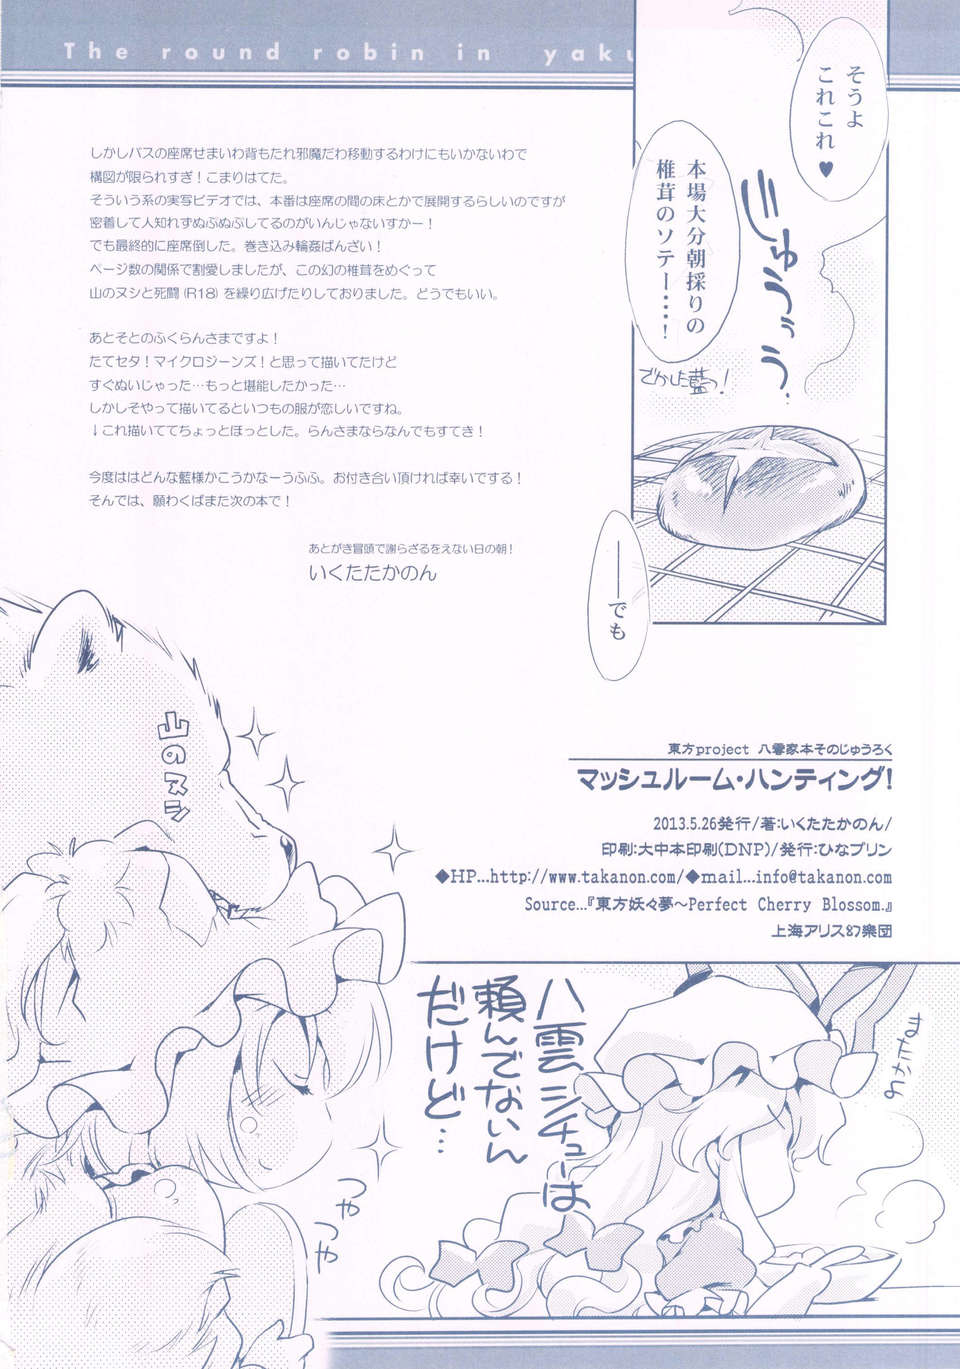 The round robin in yaku
そうよ
これこれ
♥
本場大分朝採りの
椎茸のソテー････!
じゅううぅ…
でかした藍っ!
――でも
しかしバスの座席せまいわ背もたれ邪魔だわ移動するわけにもいかないわで
構図が限られすぎ!こまりはてた。
そういう系の実写ビデオでは、本番は座席の間の床とかで展開するらしいのですが
密着して人知れずぬぷぬぷしてるのがいんじゃないすかー!
でも最終的に座席倒した。巻き込み輪姦ばんざい!
ページ数の関係で割愛しましたが、この幻の椎茸をめぐって
山のヌシと死闘(R18)を繰り広げたりしておりました。どうでもいい。
あとそとのふくらんさまですよ!
たてセタ!マイクロジーンズ!と思って描いてたけど
すぐぬいじゃった…もっと堪能したかった…
しかしそやって描いてるといつもの服が恋しいですね。
↓これ描いててちょっとほっとした。らんさまならなんでもすてき!
今度ははどんな藍様かこうかなーうふふ。お付き合い頂ければ幸いでする!
そんでは、願わくばまた次の本で!
あとがき冒頭で謝らざるをえない日の朝!
いくたたかのん
山のヌシ
東方project 八雲家本そのじゅうろく
マッシュルーム・ハンティング!
2013.5.26発行/著:いくたたかのん/
印刷:大中本印刷(DNP)/発行:ひなプリン
◆HP...http://www.takanon.com/◆mail...info@takanon.com
Source...『東方妖々夢～Perfect Cherry Blossom.』
上海アリス幻樂団
八雲シチューは
頼んでないん
だけど…
つや
つや